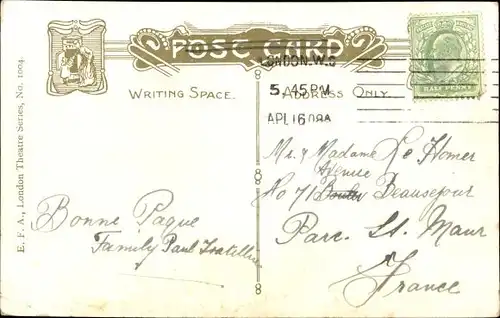 POST CARD
WRITING SPACE.
ADDRESS ONLY.
LONDON. W.
5. 45 PM
APL 16 08
HALF PENNY
E. F. A., London Theatre Series, No. 1004.
Mr & Madame Le Homer
Avenue
No 71 Beausejour
Parc. St. Maur
France
Bonne Paque
Family Paul